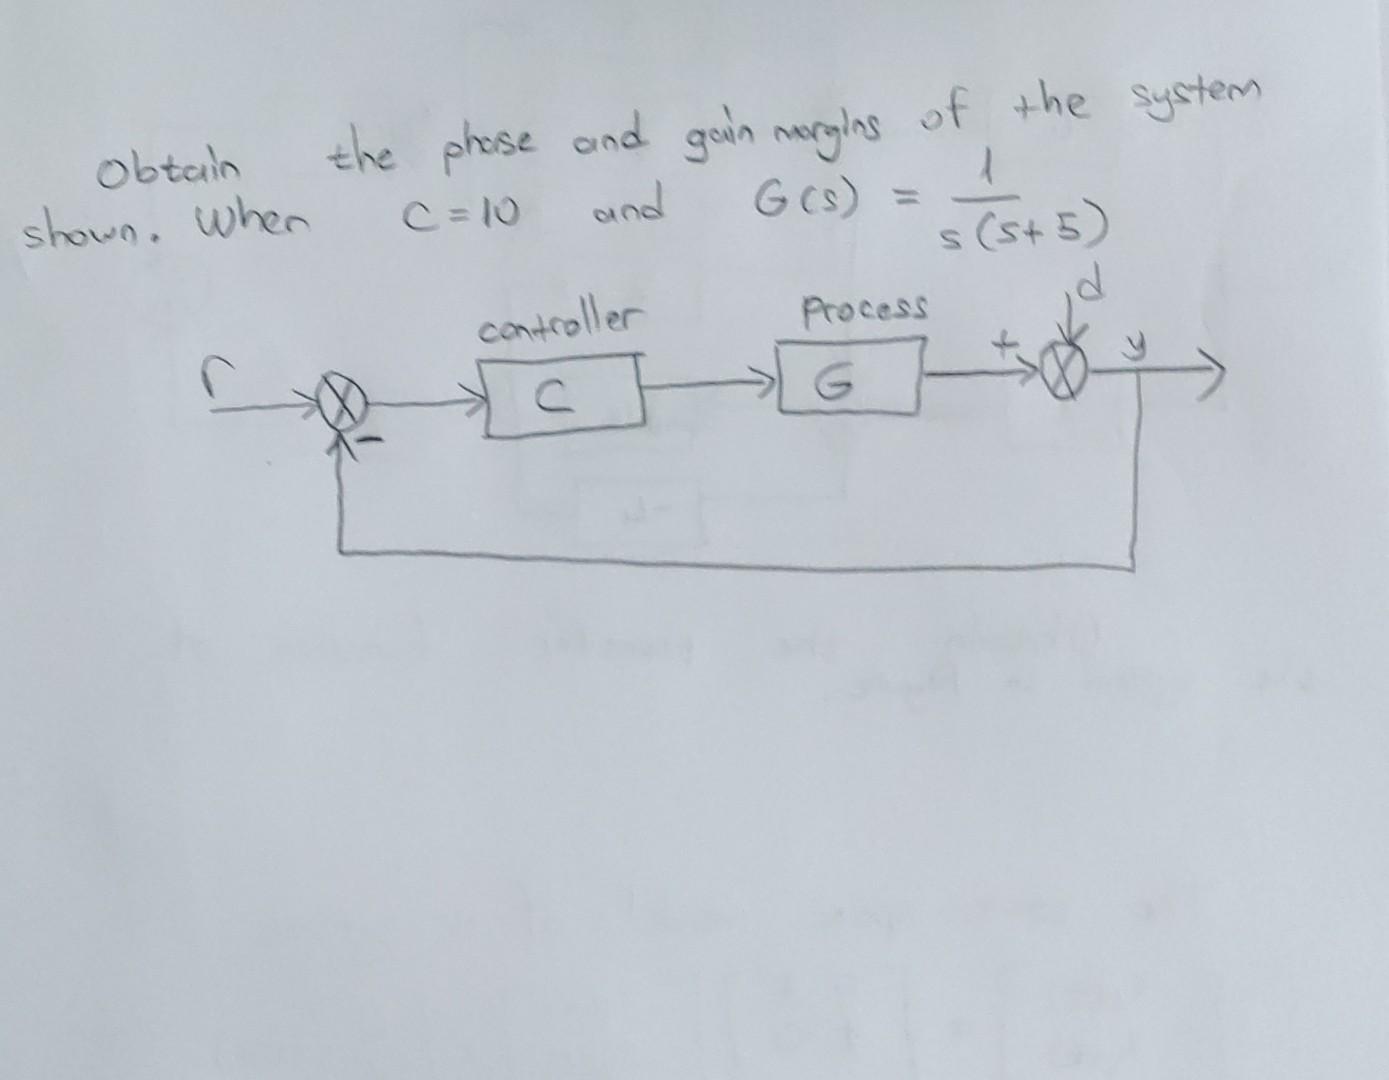 Obtain the phase and gain margins of the system
shown. When C = 10 and G(s) = 1 / s(s+5)
d
controller
Process
r
C
G
+
y
-